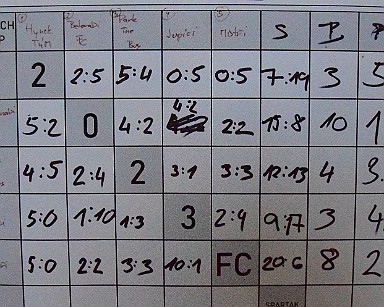 CH ① ② ③ ④ ⑤ S P P
P Hynek Tým Belaradi FC Park The Bus Jupíci Mstři
2 2:5 5:4 0:5 0:5 7:19 3 5
5:2 0 4:2 4:2 2:2 15:8 10 1
4:5 2:4 2 3:1 3:3 12:13 4 3.
5:0 1:10 1:3 3 2:4 9:17 3 4
5:0 2:2 3:3 10:1 FC 20:6 8 2
SPARTAK